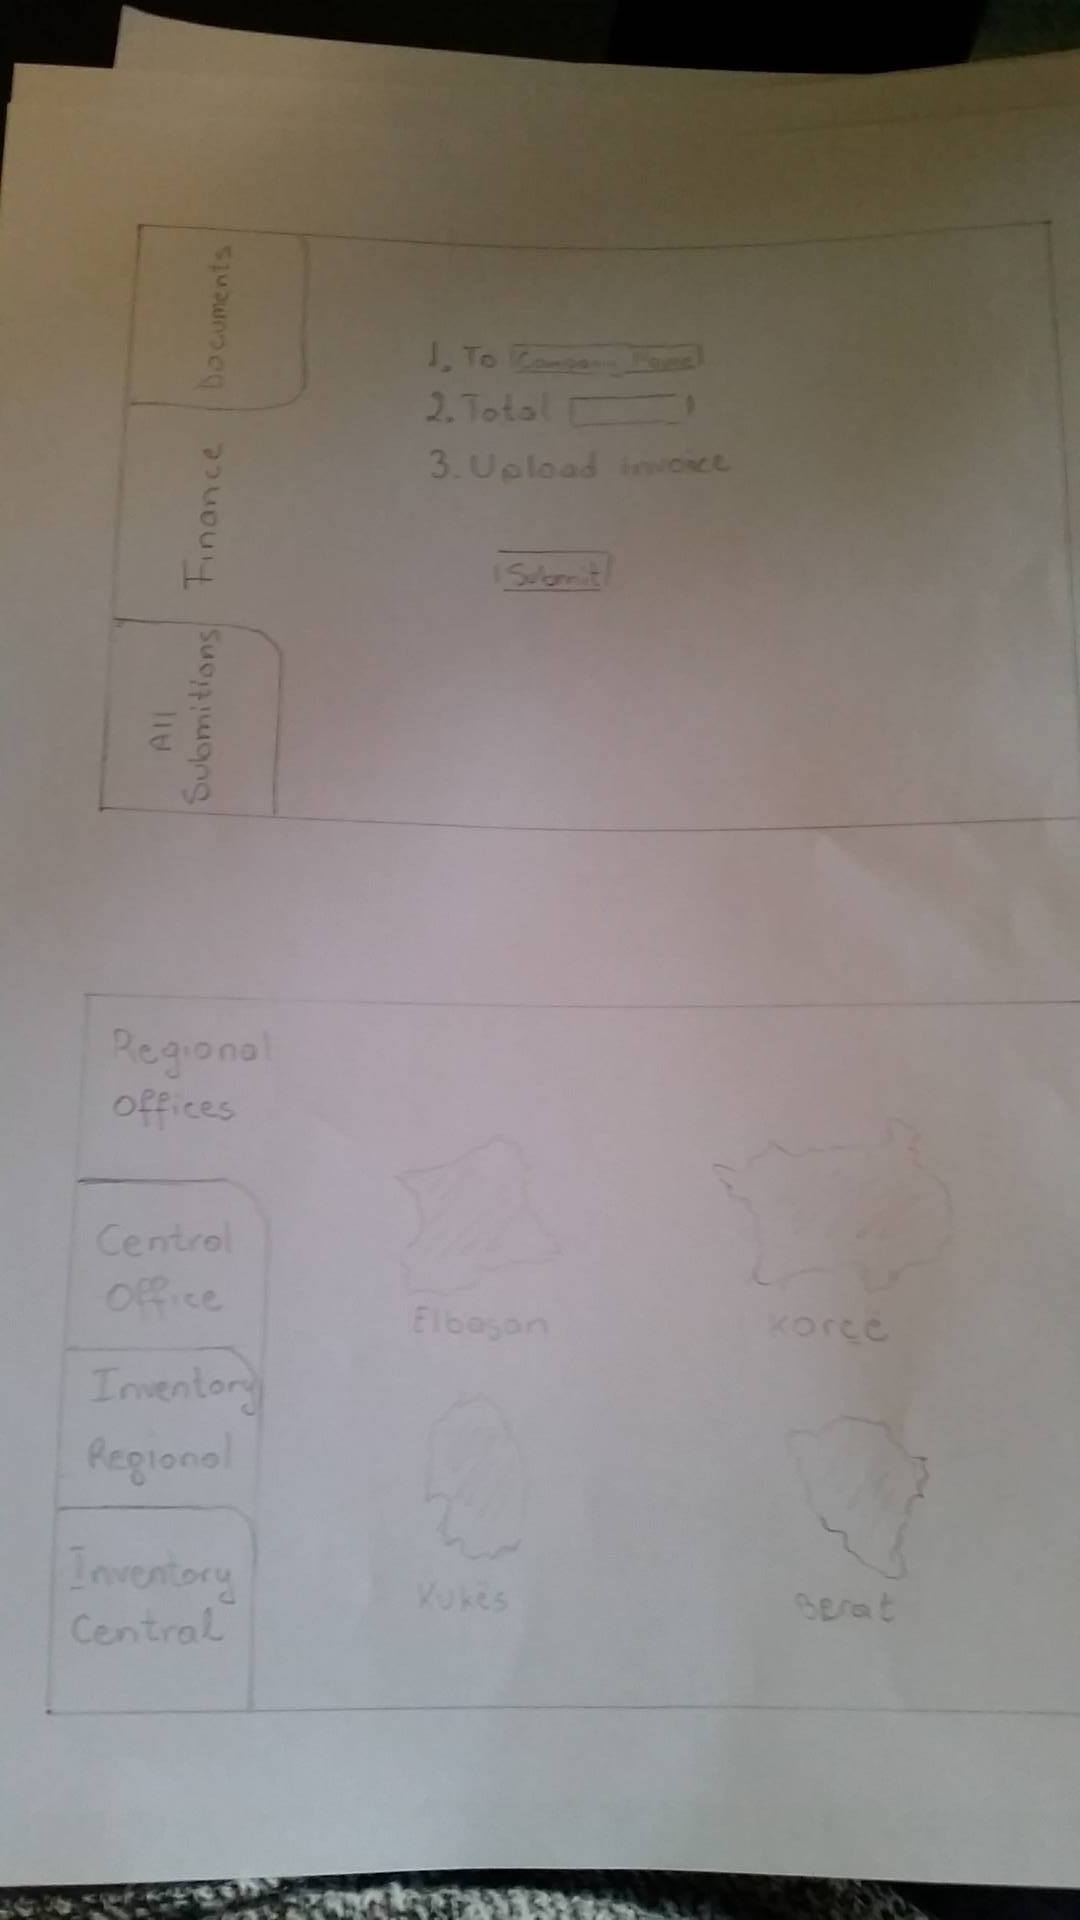 Documents
Finance
All
Submitions
1. To Company Name
2. Total
3. Upload invoice
Submit
Regional
Offices
Central
Office
Inventory
Regional
Inventory
Central
Elbasan
Korçë
Kukës
Berat